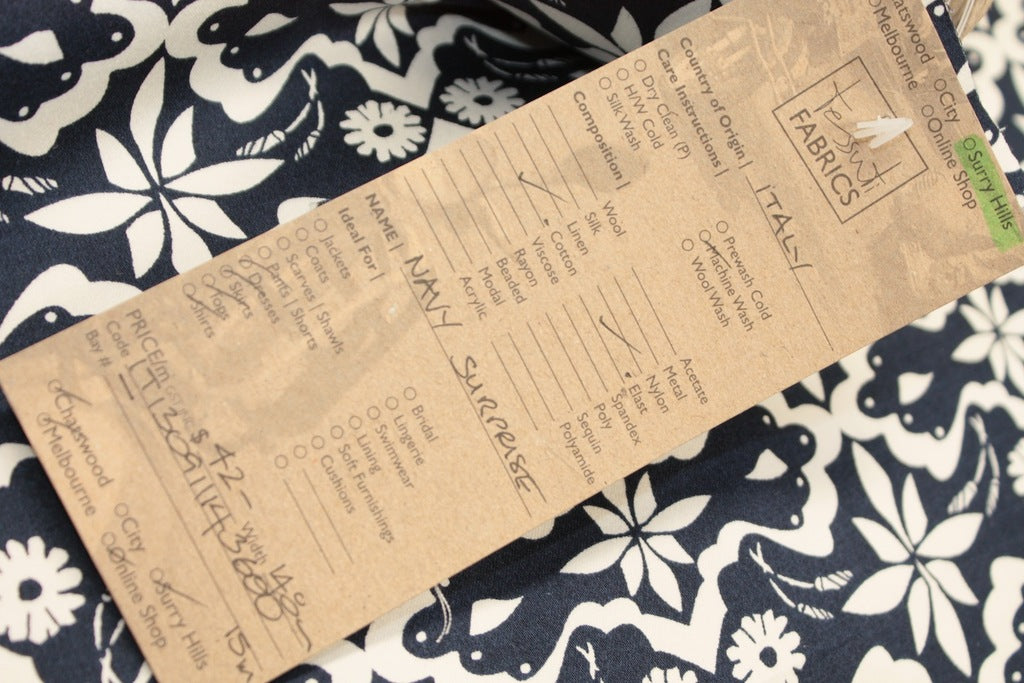 tessuti
FABRICS
Chatswood
Melbourne
City
Online Shop
Surry Hills
Country of Origin | ITALY
Care Instructions |
Dry Clean (P)
H/W Cold
Silk Wash
Prewash Cold
Machine Wash
Wool Wash
Composition |
Wool
Silk
Linen
Cotton
Viscose
Rayon
Beaded
Modal
Acrylic
Acetate
Metal
Nylon
Elast
Spandex
Poly
Sequin
Polyamide
NAME | NAVY SURPRISE
Ideal For |
Jackets
Coats
Scarves | Shawls
Pants | Shorts
Dresses
Skirts
Tops
Shirts
Bridal
Lingerie
Swimwear
Lining
Soft Furnishings
Cushions
PRICE/m $ 42- Width 148cm
Code
Bay #
Chatswood
Melbourne
City
Online Shop
Surry Hills